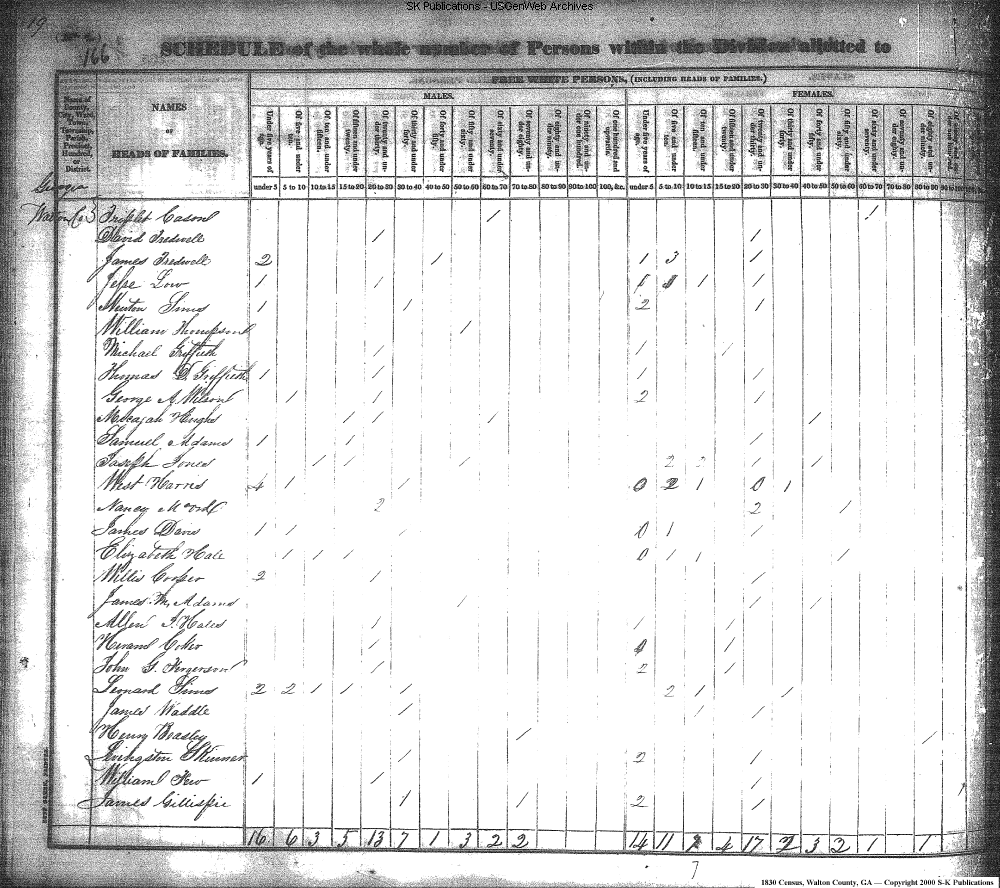 SK Publications - USGenWeb Archives
19
166
SCHEDULE of the whole number of Persons within the Division allotted to
FREE WHITE PERSONS, (INCLUDING HEADS OF FAMILIES.)
MALES. FEMALES.
Name of County, City, Ward, Town, Township, Parish, Precinct, Hundred, or District.
NAMES
OF
HEADS OF FAMILIES.
Under five years of age. Of five and under ten. Of ten and under fifteen. Of fifteen and under twenty. Of twenty and under thirty. Of thirty and under forty. Of forty and under fifty. Of fifty and under sixty. Of sixty and under seventy. Of seventy and under eighty. Of eighty and under ninety. Of ninety and under one hundred. Of one hundred and upwards. Under five years of age. Of five and under ten. Of ten and under fifteen. Of fifteen and under twenty. Of twenty and under thirty. Of thirty and under forty. Of forty and under fifty. Of fifty and under sixty. Of sixty and under seventy. Of seventy and under eighty. Of eighty and under ninety.
under 5 5 to 10 10 to 15 15 to 20 20 to 30 30 to 40 40 to 50 50 to 60 60 to 70 70 to 80 80 to 90 90 to 100 100, &c. under 5 5 to 10 10 to 15 15 to 20 20 to 30 30 to 40 40 to 50 50 to 60 60 to 70 70 to 80 80 to 90 90 to 100
Georgia
Walton Co Triplet Cason 1 1
David Tredwell 1 1
James Tredwell 2 1 1 3 1
Jesse Low 1 1 1 1 1
Newton Sims 1 1 2 1
William Thompson 1
Michael Griffieth 1 1 1
Thomas D. Griffieth 1 1 1 1
George A Wilson 1 1 2 1
Micajah Hughs 1 1 1 1
Samuel Adams 1 1 1
Joseph Jones 1 1 1 2 2 1 1
West Harris 4 1 1 0 2 1 0 1
Nancy 2 2 1
James Davis 1 1 1 0 1 1
Elizabeth Hale 1 1 1 0 1 1 1
Willis Cooper 2 1 1
James M. Adams 1 1 1
Allen Hales 1 1 1
Coker 1 1
John G. Fergerson 1 2 1
Leonard Sims 2 2 1 1 1 2 1 1
James Waddle 1 1 1
Henry Beasley 1 1
Livingston Skinner 1 2 1
William Few 1 1 1
James Gillispie 1 1 2 1
16 6 3 5 13 7 1 3 2 2 14 11 4 17 2 3 2 1 1
7
1830 Census, Walton County, GA — Copyright 2000 S-K Publications